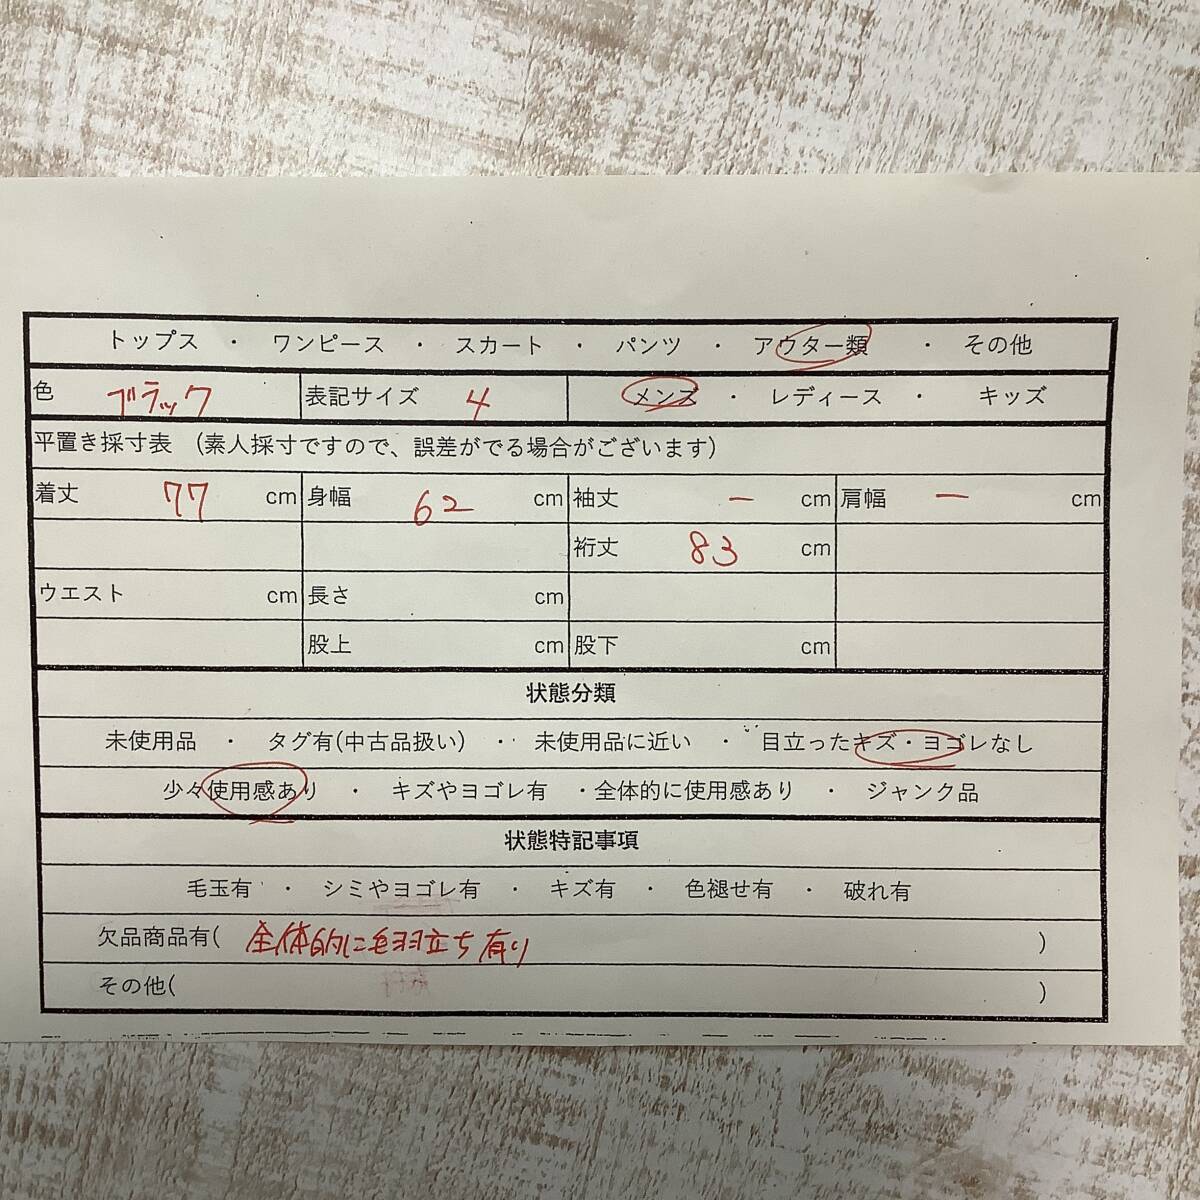 トップス ・ ワンピース ・ スカート ・ パンツ ・ アウター類 ・ その他
色 ブラック 表記サイズ 4 メンズ ・ レディース ・ キッズ
平置き採寸表 (素人採寸ですので、誤差がでる場合がございます)
着丈 77 cm 身幅 62 cm 袖丈 ー cm 肩幅 ー cm
裄丈 83 cm
ウエスト cm 長さ cm
股上 cm 股下 cm
状態分類
未使用品 ・ タグ有(中古品扱い) ・ 未使用品に近い ・ 目立ったキズ・ヨゴレなし
少々使用感あり ・ キズやヨゴレ有 ・全体的に使用感あり ・ ジャンク品
状態特記事項
毛玉有 ・ シミやヨゴレ有 ・ キズ有 ・ 色褪せ有 ・ 破れ有
欠品商品有( 全体的に毛羽立ち有り )
その他( )